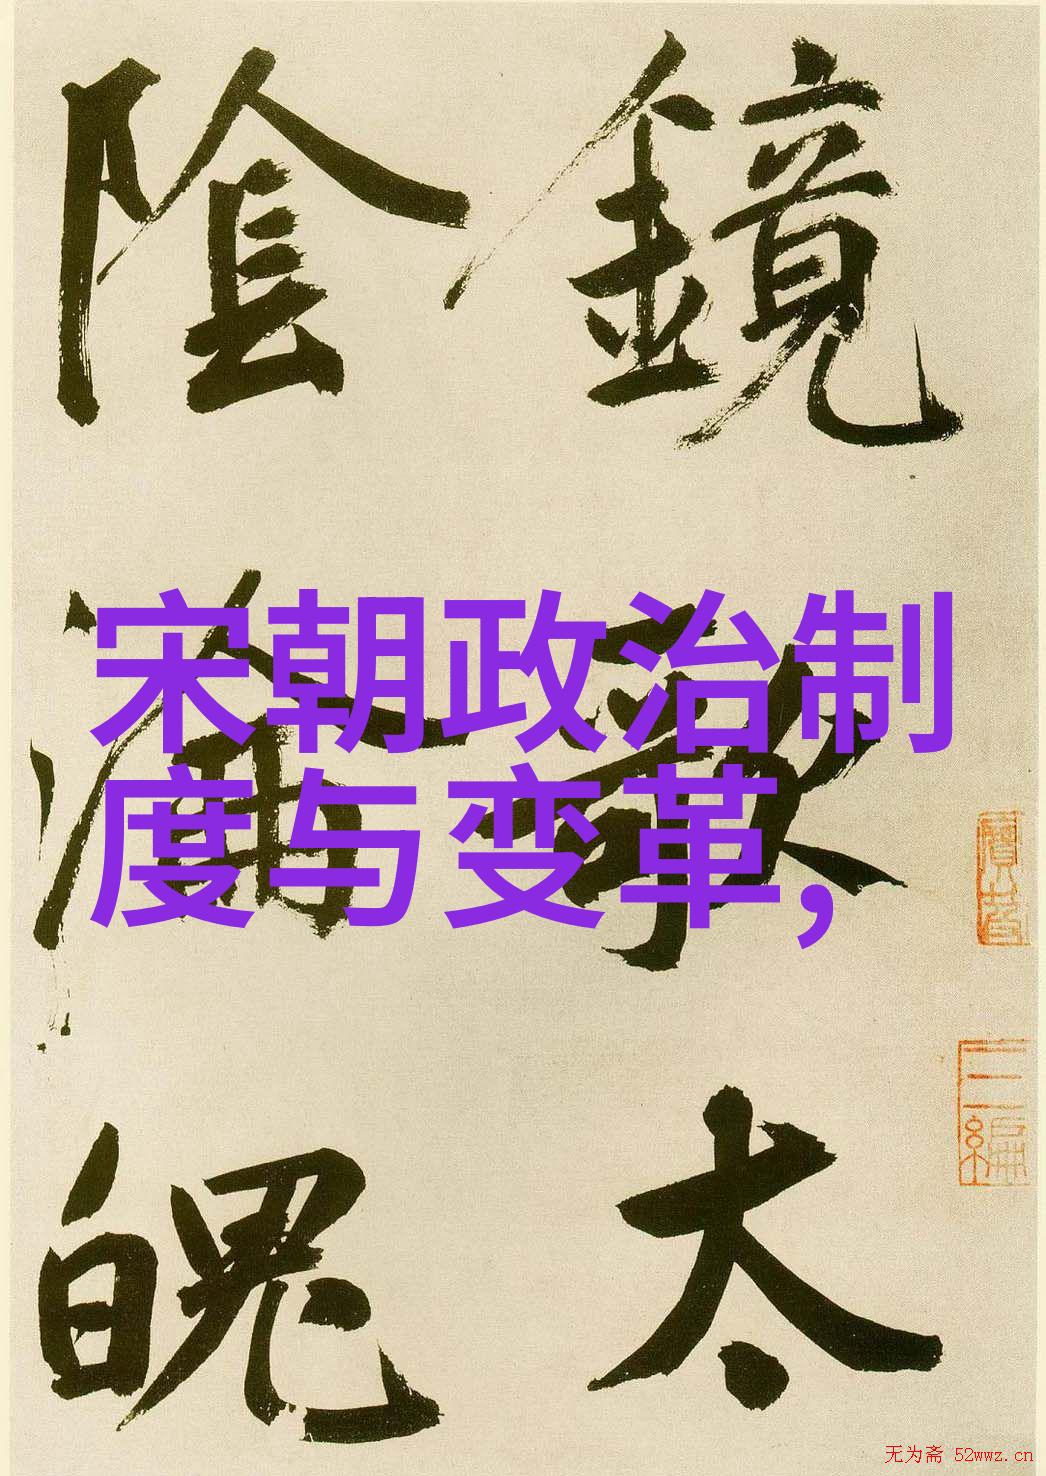 鏡
太
陰
魄
宋朝政治制
度与变革,
三編
无为斋 52wwz.cn